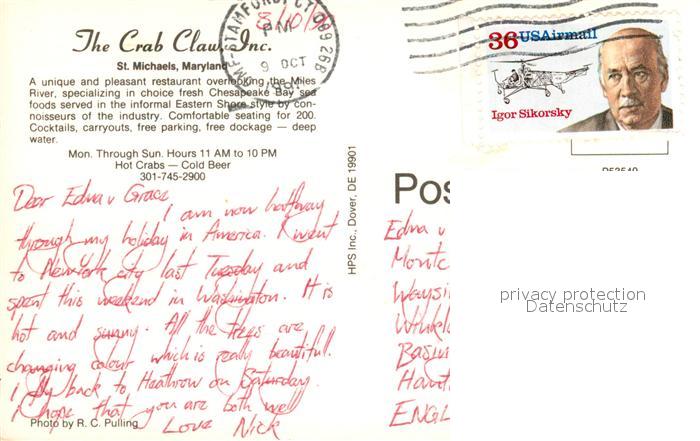 The Crab Claw, Inc.
St. Michaels, Maryland
A unique and pleasant restaurant overlooking the Miles
River, specializing in choice fresh Chesapeake Bay sea
foods served in the informal Eastern Shore style by con-
noisseurs of the industry. Comfortable seating for 200.
Cocktails, carryouts, free parking, free dockage — deep
water.
Mon. Through Sun. Hours 11 AM to 10 PM
Hot Crabs — Cold Beer
301-745-2900
STAMFORD, CT 069
PM
9 OCT
36 USAirmail
Igor Sikorsky
HPS Inc., Dover, DE 19901
Pos
Dear Edna & Grace
I am now halfway
through my holiday in America. I went
to New York city last Tuesday and
spent this weekend in Washington. It is
hot and sunny. All the trees are
changing colour which is really beautiful.
I fly back to Heathrow on Saturday.
I hope that you are both well
Love Nick
Photo by R. C. Pulling
Edna &
ENGL
privacy protection
Datenschutz